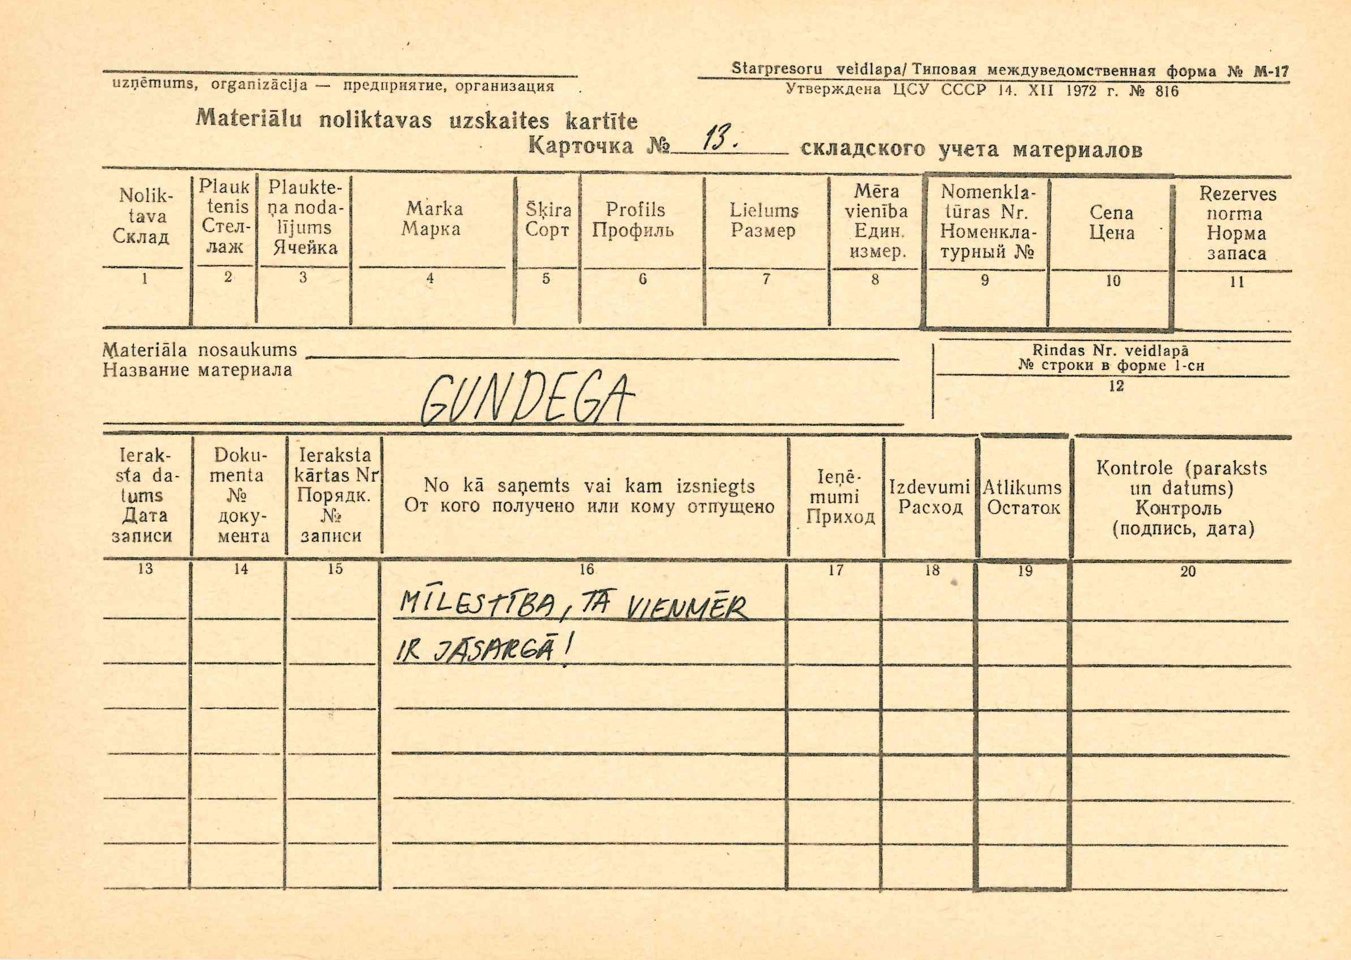 Starpresoru veidlapa/Типовая междуведомственная форма № М-17
uzņēmums, organizācija — предприятие, организация
Утверждена ЦСУ СССР 14. XII 1972 г. № 816
Materiālu noliktavas uzskaites kartīte
Карточка № 13. складского учета материалов
Nolik-
tava
Склад
Plauk
tenis
Стел-
лаж
Plaukte-
ņa noda-
lījums
Ячейка
Marka
Марка
Šķira
Сорт
Profils
Профиль
Lielums
Размер
Mēra
vienība
Един.
измер.
Nomenkla-
tūras Nr.
Номенкла-
турный №
Cena
Цена
Rezerves
norma
Норма
запаса
1 2 3 4 5 6 7 8 9 10 11
Materiāla nosaukums
Название материала
GUNDEGA
Rindas Nr. veidlapā
№ строки в форме 1-сн
12
Ierak-
sta da-
tums
Дата
записи
Doku-
menta
№
доку-
мента
Ieraksta
kārtas Nr
Порядк.
№
записи
No kā saņemts vai kam izsniegts
От кого получено или кому отпущено
Ieņē-
mumi
Приход
Izdevumi
Расход
Atlikums
Остаток
Kontrole (paraksts
un datums)
Контроль
(подпись, дата)
13 14 15 16 17 18 19 20
MĪLESTĪBA, TĀ VIENMĒR
IR JĀSARGĀ!